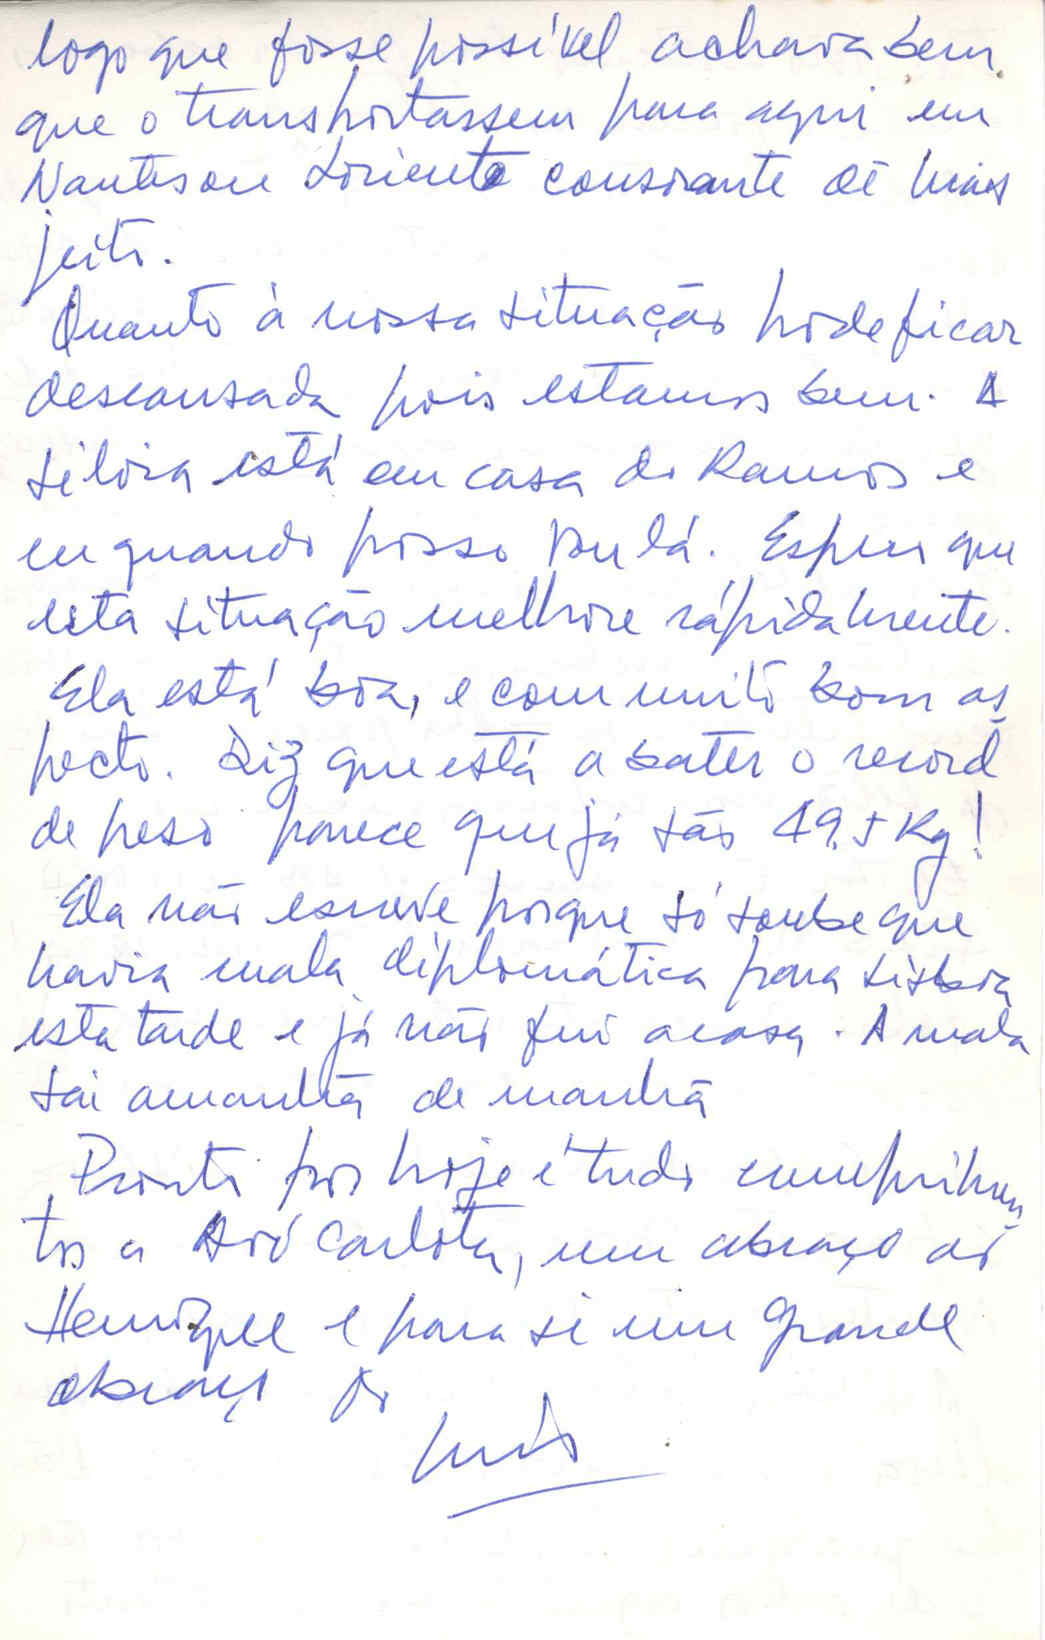 logo que fosse possível achava bem
que o transportassem para aqui em
Nantes ou Loriente consoante dê mais
jeito.
Quanto à nossa situação pode ficar
descansada pois estamos bem. A
Sílvia está em casa do Ramos e
eu quando posso vou lá. Espero que
esta situação melhore rápidamente.
Ela está boa, e com muito bom as
pecto. Diz que está a bater o record
de peso parece que já são 49,5 Kg!
Ela não escreve porque só soube que
havia mala diplomática para Lisboa
esta tarde e já não fui a casa. A mala
sai amanhã de manhã
Pronto por hoje é tudo cumprimen
tos a Avó Carlota, um abraço ao
Henrique e para si um grande
abraço do